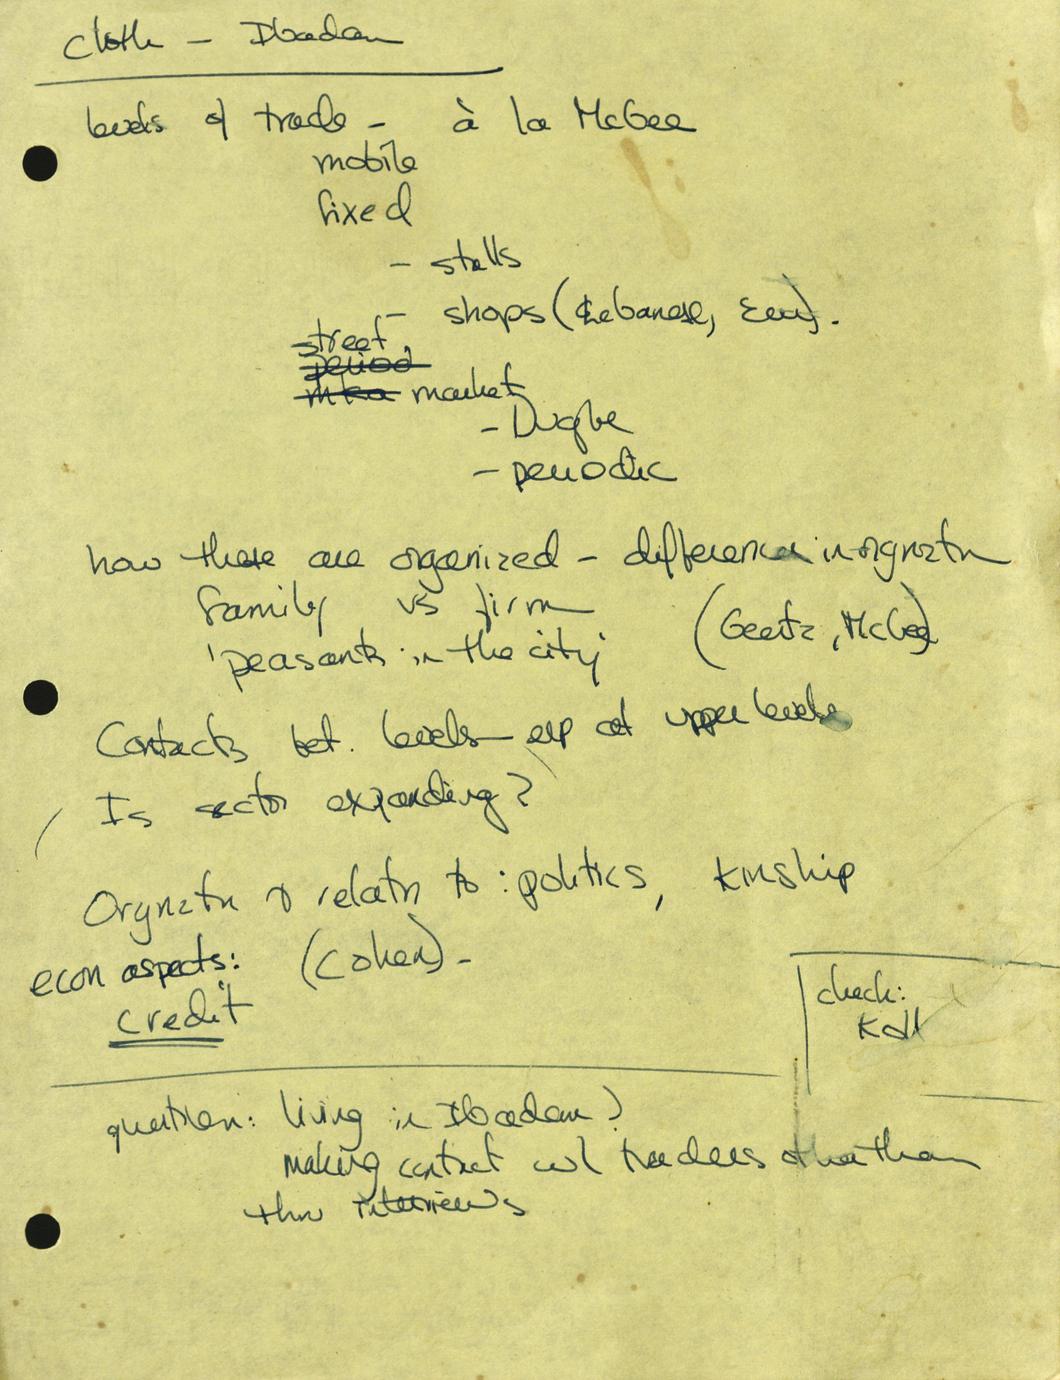 Cloth – Ibadan
levels of trade – à la McGee
mobile
fixed
– stalls
– shops (Lebanese, Eur).
street
period
mka market
– Dugbe
– periodic
how these are organized – differences in orgnztn
family vs firm (Geertz, McGee)
'peasants in the city'
Contacts bet. levels – esp at upper levels
Is sector expanding?
Orgnztn & relatn to : politics, kinship
econ aspects: (Cohen). –
credit
check:
Koll
question: living in Ibadan?
making contact w/ traders other than
thru interviews